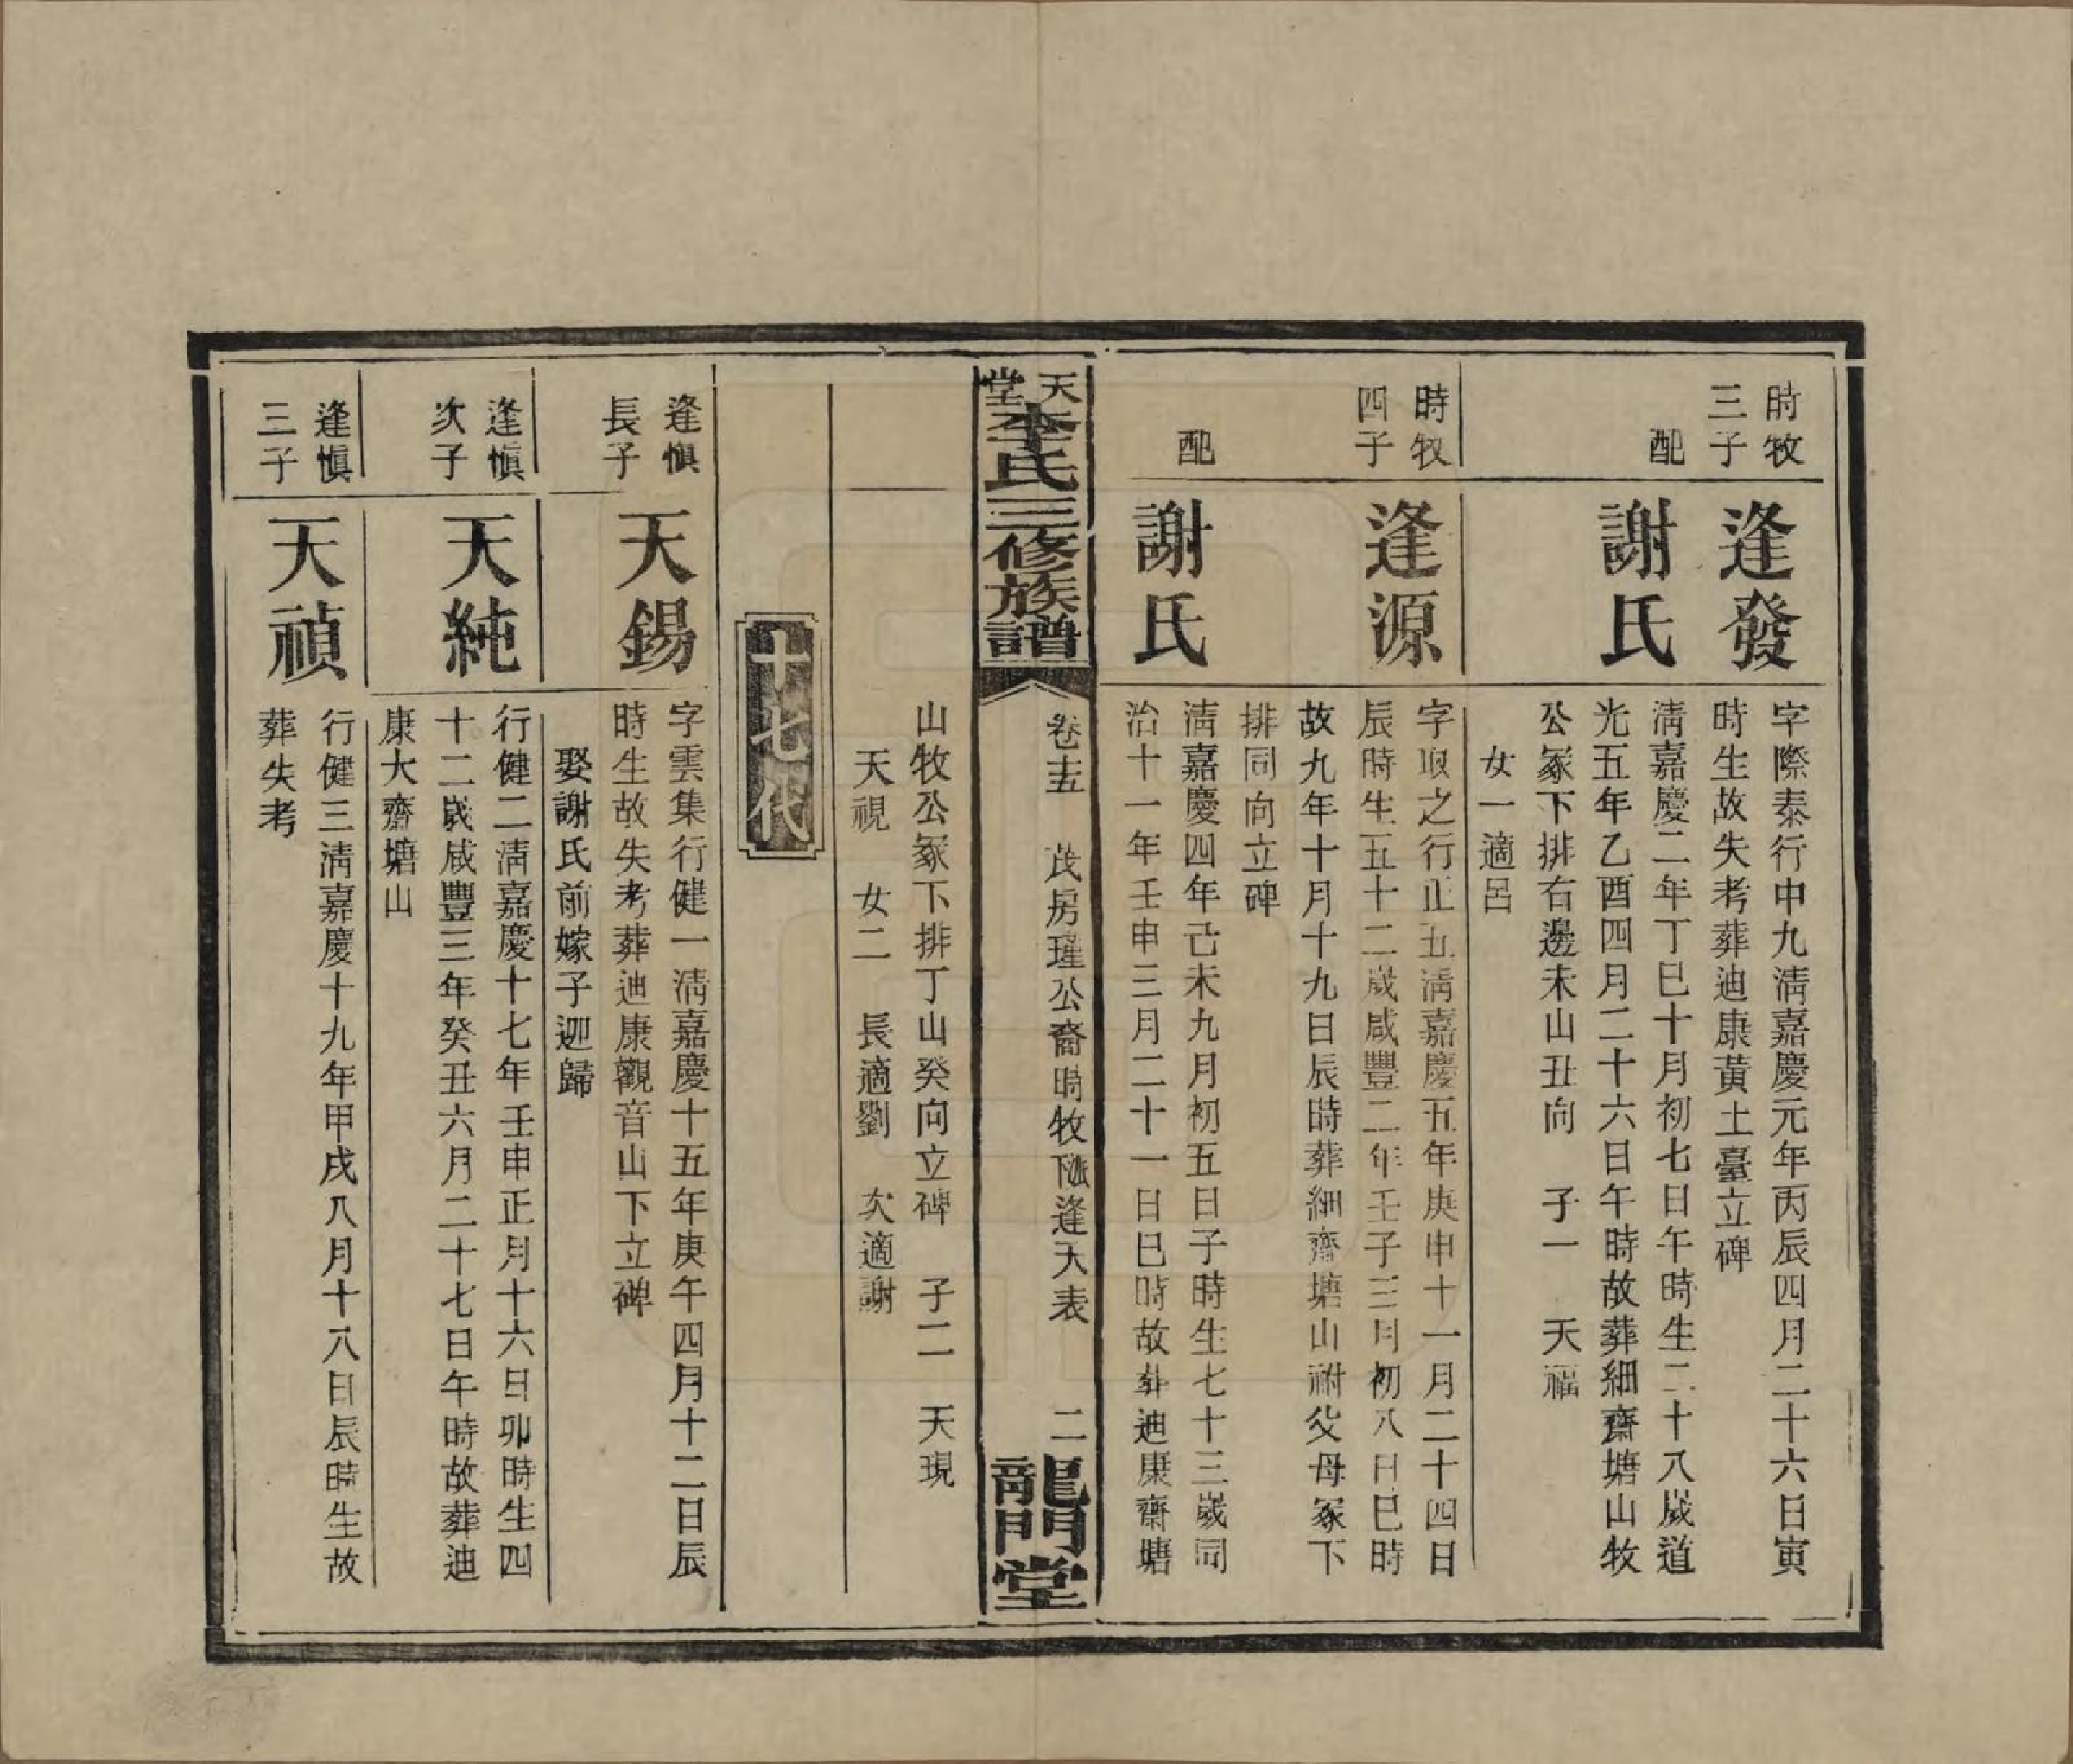 時牧
三子
逢發
字際泰行中九淸嘉慶元年丙辰四月二十六日寅
時生故失考葬迪康黃土臺立碑
配
謝氏
淸嘉慶二年丁巳十月初七日午時生二十八歲道
光五年乙酉四月二十六日午時故葬細齋塘山牧
公冢下排右邊未山丑向 子一 天福
女一適呂
時牧
四子
逢源
字取之行正五淸嘉慶五年庚申十一月二十四日
辰時生五十二歲咸豐二年壬子三月初八日巳時
故九年十月十九日辰時葬細齋塘山祔父母冢下
排同向立碑
配
謝氏
淸嘉慶四年己未九月初五日子時生七十三歲同
治十一年壬申三月二十一日巳時故葬迪康齋塘
天堂
李氏三修族譜
卷 茂房瑾公裔時牧 逢天表 二
龍門堂
山牧公冢下排丁山癸向立碑 子二 天現
天視 女二 長適劉 次適謝
十七代
逢愼
長子
天錫
字雲集行健一淸嘉慶十五年庚午四月十二日辰
時生故失考葬迪康觀音山下立碑
娶謝氏前嫁子迎歸
逢愼
次子
天純
行健二淸嘉慶十七年壬申正月十六日卯時生四
十二歲咸豐三年癸丑六月二十七日午時故葬迪
康大齋塘山
逢愼
三子
天禎
行健三淸嘉慶十九年甲戌八月十八日辰時生故
葬失考